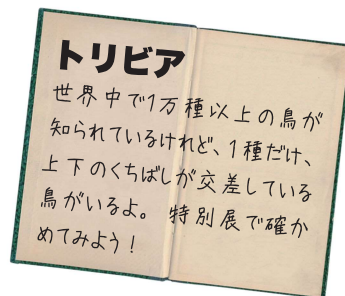 トリビア
世界中で1万種以上の鳥が
知られているけれど、1種だけ、
上下のくちばしが交差している
鳥がいるよ。特別展で確か
めてみよう！